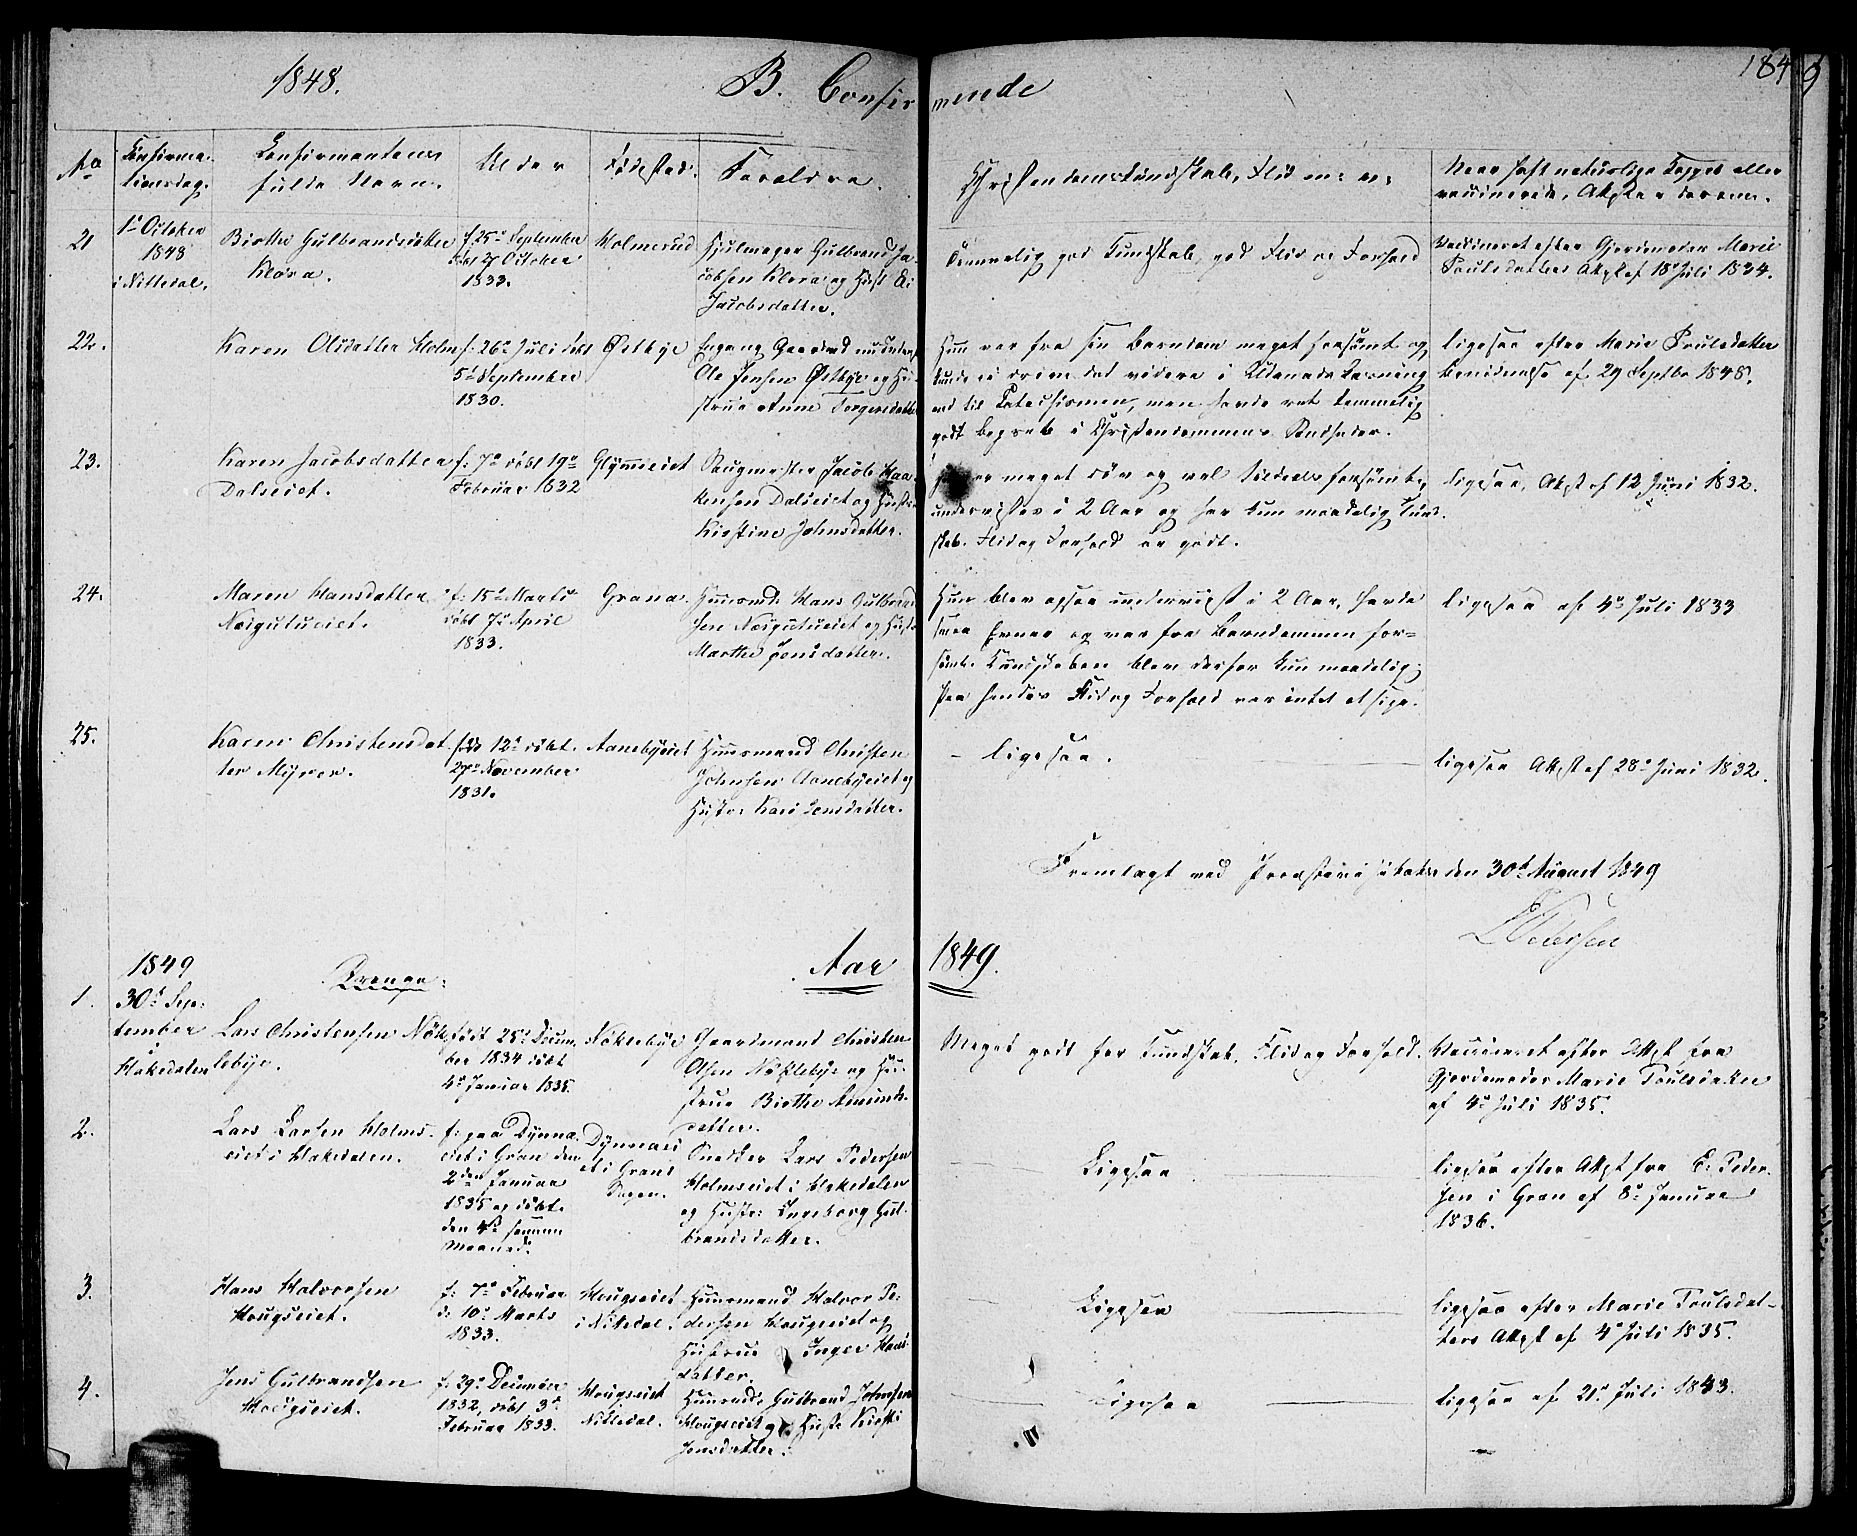 1848.
B. Confirmerede
1849
No
Confirma-
tionsdag.
Confirmantens
fulde Navn.
Alder
Fødested.
Forældre.
Christendomskundskab, Flid m: v:
Naar haft naturlige Kopper eller
vaccinerede, Attester derom.
21
1ste October
1848
i Nittedal.
Birthe Gulbrandsdatter
Kløva.
f. 25de September
døbt 27 October
1833.
Holmerud
Hjulmager Gulbrand Ja-
cobsen Kløva og Hust.
Jacobsdatter.
Temmelig god Kundskab, god Flid og Forhold
Vaccineret efter Gjordemoder Marie
Poulsdatters Attest af 18de Juli 1834.
22.
Karen Olsdatter Holm
f. 26de Juli døbt
5te September
1830.
Østbye
Ole Jensen Østbye og Hu-
strue Anne Torgersdatter
Hun var fra sin Barndom meget forsømt og
kunde ei drive det videre i Udenadslæsning
end til Catechismen, men havde ret temmelig
godt Begreb i Christendommens Sandheder.
ligesaa efter Marie Poulsdatters
Bevidnelse af 29 Septbr 1848.
23.
Karen Jacobsdatter
Dalseiet.
f. 7de døbt 19de
Februar 1832
Glymseiet
Jacob Haa-
kensen Dalseiet og Hustr.
Kirstine Johnsdatter.
meget døv og vel tildeels forsømt,
undervistes i 2 Aar og har kun maadelig Kund-
skab. Flid og Forhold er godt.
ligesaa, Attest af 12 Juni 1832.
24.
Maren Hansdatter
f: 15de Marts
døbt 7de April
1833.
Grana.
Huusmd: Hans Gulbrand-
sen og Hust:
Marthe Jensdatter.
Hun blev ogsaa underviist i 2 Aar, havde
smaa Evner og var fra Barndommen for-
sømt. Kundskaben blev derfor kun maadelig;
paa hendes Flid og Forhold var intet at sige.
ligesaa af 4de Juli 1833
25.
Karen Christensdat-
ter Myrer.
12te døbt
27de November
1831.
Aanebyeiet
Huusmand Christen
Johnsen Aanebyeiet og
Hustr: Kari Jensdatter.
– ligesaa.
ligesaa Attest af 28de Juni 1832.
Fremlagt ved Provstevisitatsen den 30te August 1849
Pedersen
Aar 1849.
1849
Drenge:
1.
30te Sep-
tember
Hakedalen
Lars Christensen Nøk-
lebye.
født 25de Decem-
ber 1834 døbt
4de Januar 1835.
Nøklebye
Gaardmand Christen
Olsen Nøklebye og Hu-
strue Birthe Amunds-
datter.
Meget godt for Kundskab, Flid og Forhold.
Vaccineret efter Attest fra
Gjordemoder Marie Poulsdatter
af 4de Juli 1835.
2.
Lars Larsen Holms-
eiet i Hakedalen.
f: paa Dynna-
eiet i Gran den
2den Januar
1835 og døbt
den 4de samme
Maaned.
Dynnaei-
et i Grans
Sogn.
Snedker Lars Pedersen
Holmseiet i Hakedalen
og Hustr: Ingeborg Gul-
brandsdatter.
Ligesaa
ligesaa efter Attest fra E: Peder-
sen i Gran af 8de Januar
1836.
3.
Hans Halvorsen
Hougseiet.
f: 7de Februar
d: 10de Marts
1833.
Hougseiet
i Nittedal.
Huusmand Halvor Pe-
dersen Hougseiet og
Hustrue Inger Hans-
datter.
Ligesaa
ligesaa efter Marie Poulsdat-
ters Attest af 4de Juli 1835.
4.
Jens Gulbrandsen
Hougseiet.
f: 29de December
1832, døbt 3de
Februar 1833.
Hougseiet
i
Nittedal.
Huusmd: Gulbrand Johnsen
Hougseiet og Hustr
Jensdatter.
Ligesaa
ligesaa af 21de Juli 1843.